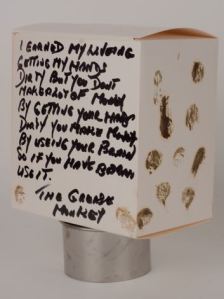 I EARNED MY LIVEING
GETTING MY HANDS
DIRTY BUT YOU DON'T
MAKE A LOT OF MONEY
BY GETTING YOUR HANDS
DIRTY YOU MAKE MONEY
BY USING YOUR BRAIN
SO IF YOU HAVE
USE IT.
THE GREASE
MONKEY